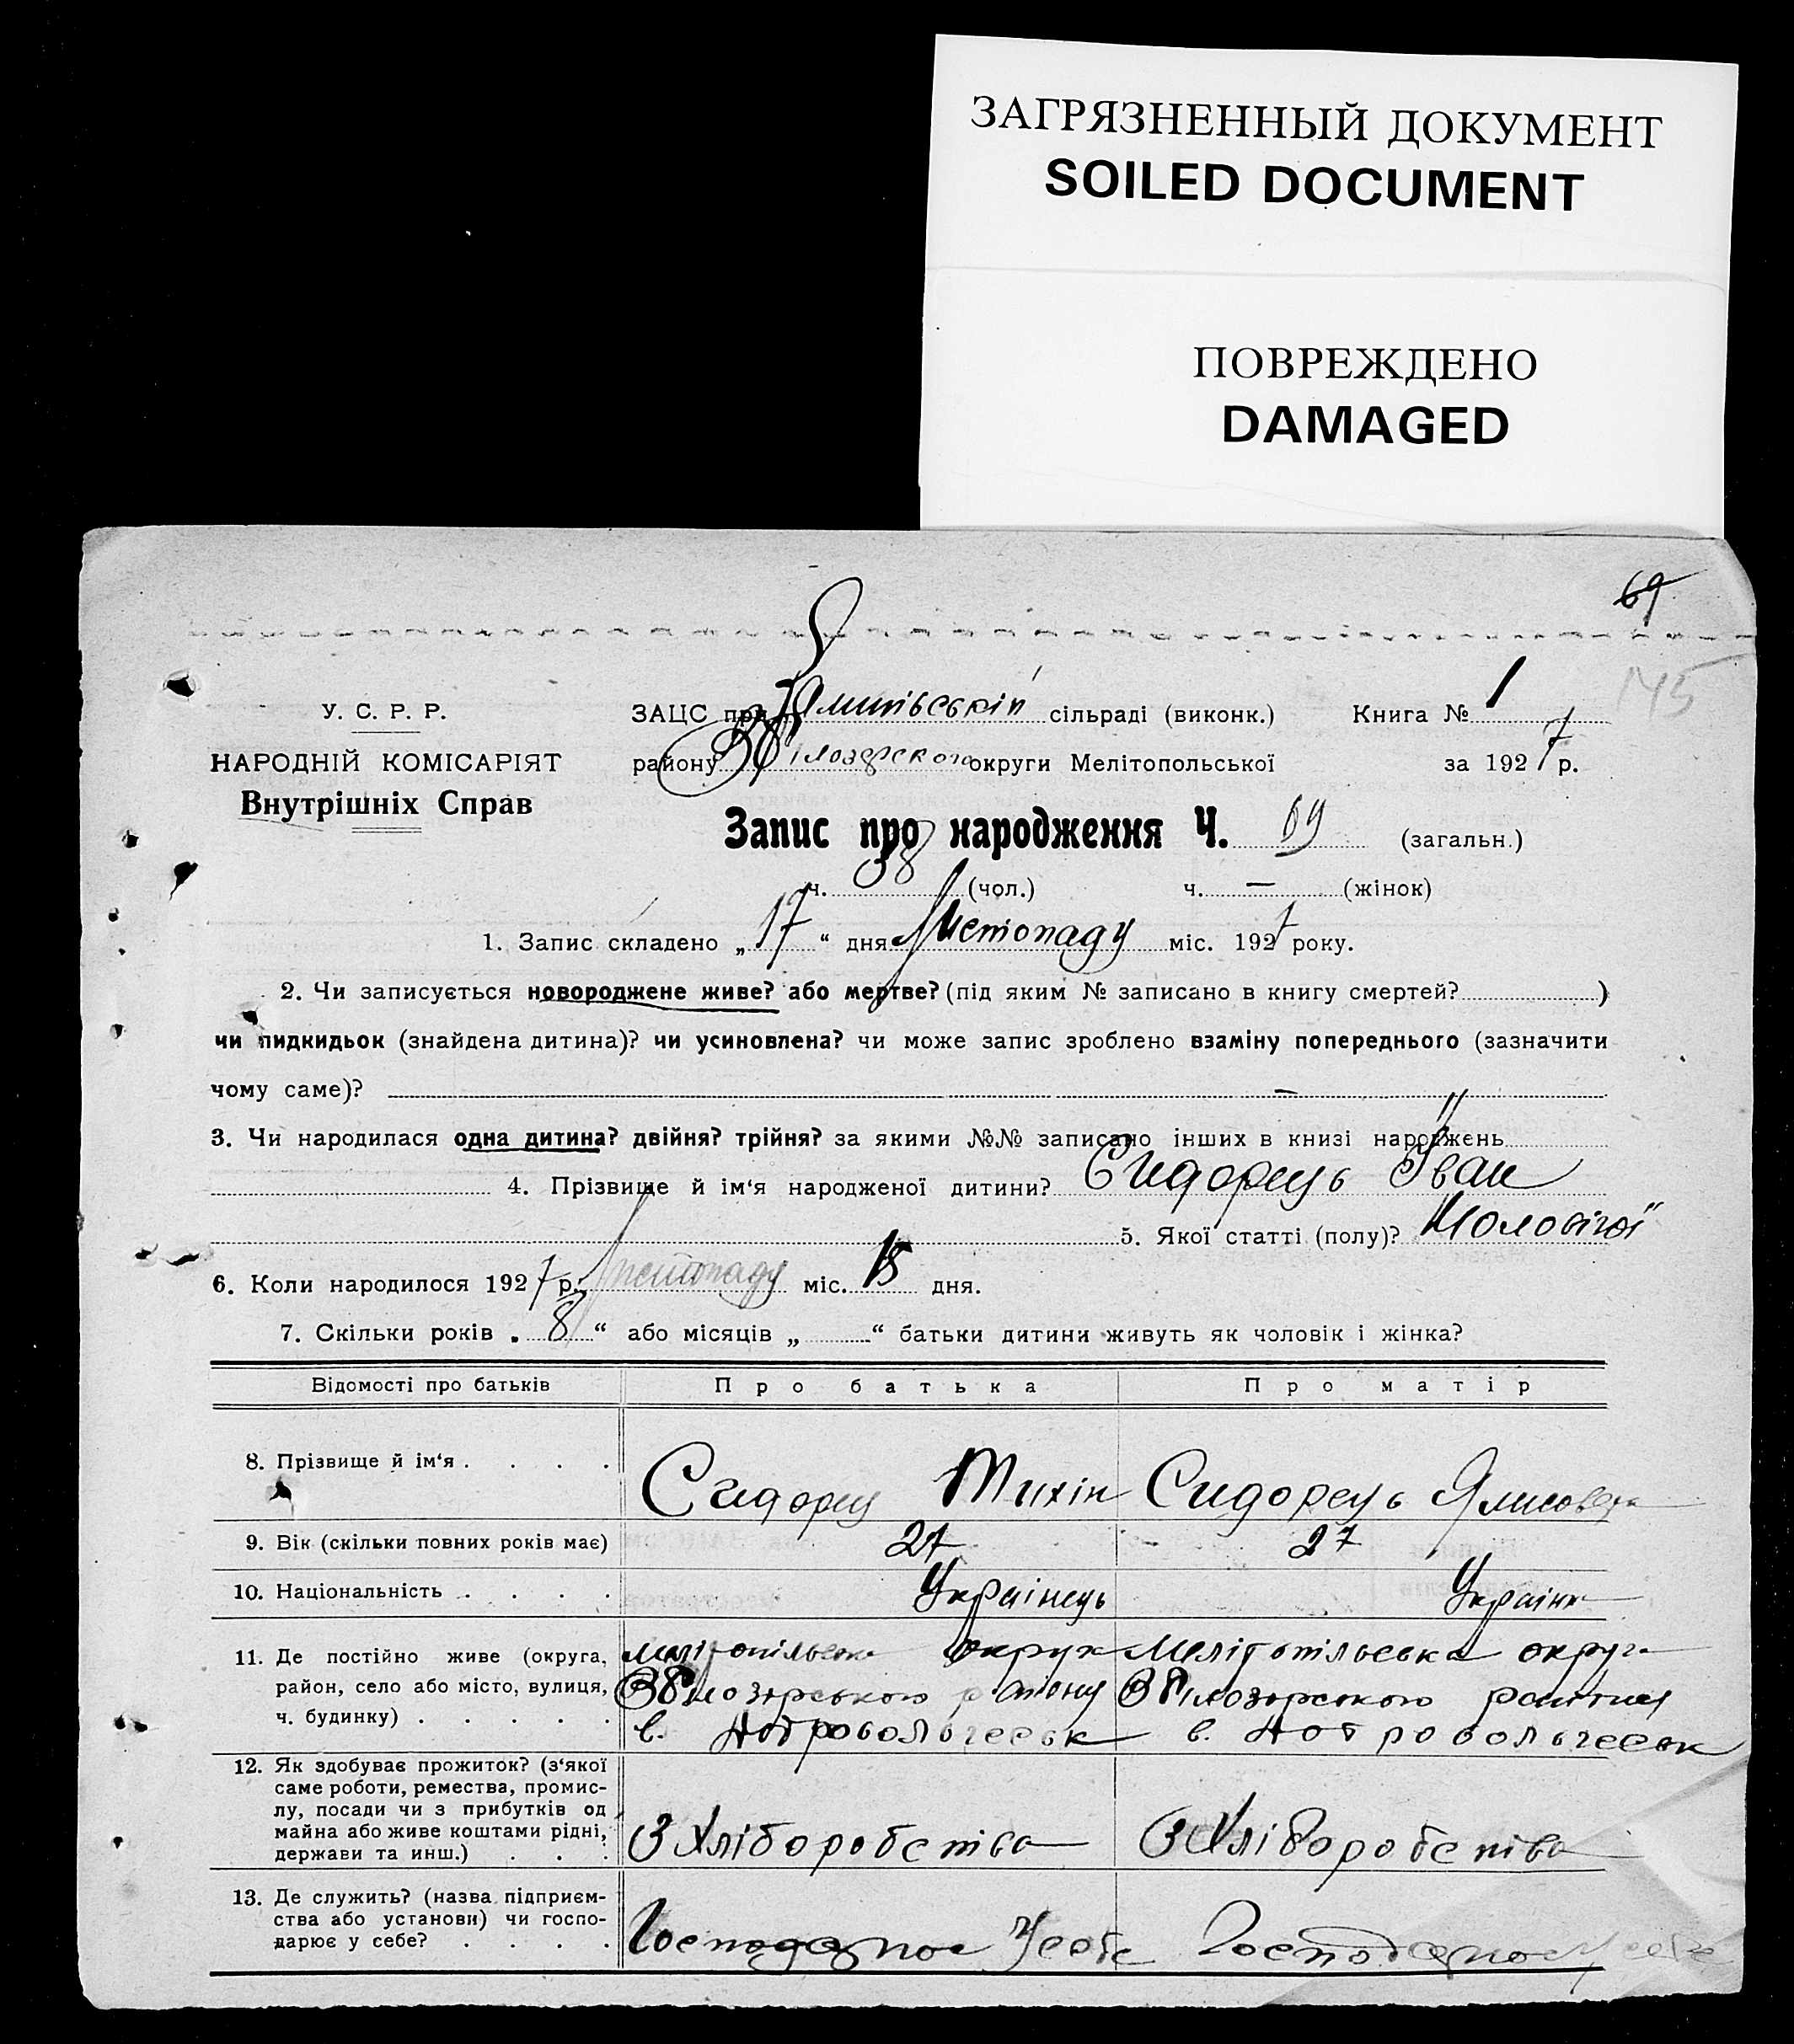 ЗАГРЯЗНЕННЫЙ ДОКУМЕНТ
SOILED DOCUMENT
ПОВРЕЖДЕНО
DAMAGED
69
145
У. С. Р. Р.
НАРОДНІЙ КОМІСАРІЯТ
Внутрішніх Справ
ЗАЦС при сільраді (виконк.) Книга № 1
району округи Мелітопольської за 1927 р.
Запис про народження Ч. 69 (загальн.)
ч. 38 (чол.) ч. — (жінок)
1. Запис складено „17“ дня Листопаду міс. 1927 року.
2. Чи записується новороджене живе? або мертве? (під яким № записано в книгу смертей? )
чи пидкидьок (знайдена дитина)? чи усиновлена? чи може запис зроблено взаміну попереднього (зазначити
чому саме)? —
3. Чи народилася одна дитина? двійня? трійня? за якими №№ записано інших в книзі народжень
4. Прізвище й ім‘я народженої дитини? Сидорець Іван
5. Якої статті (полу)? Чоловічої
6. Коли народилося 1927 р. Листопаду міс. 15 дня.
7. Скільки років „8“ або місяців „ “ батьки дитини живуть як чоловік і жінка?
Відомості про батьків Про батька Про матір
8. Прізвище й ім‘я . . . . Сидорец Тихін Сидорець
9. Вік (скільки повних років має) 27 27
10. Національність . . . . Українець Україн
11. Де постійно живе (округа,
район, село або місто, вулиця,
ч. будинку) . . . . .
округа Мелітопільська округа
району
в. в.
12. Як здобуває прожиток? (з‘якої
саме роботи, ремества, промис-
лу, посади чи з прибутків од
майна або живе коштами рідні,
держави та инш.) . . .
З Хліборобства З Хліборобства
13. Де служить? (назва підприєм-
ства або установи) чи госпо-
дарює у себе? . . . .
Господарює У себе Господарює У себе